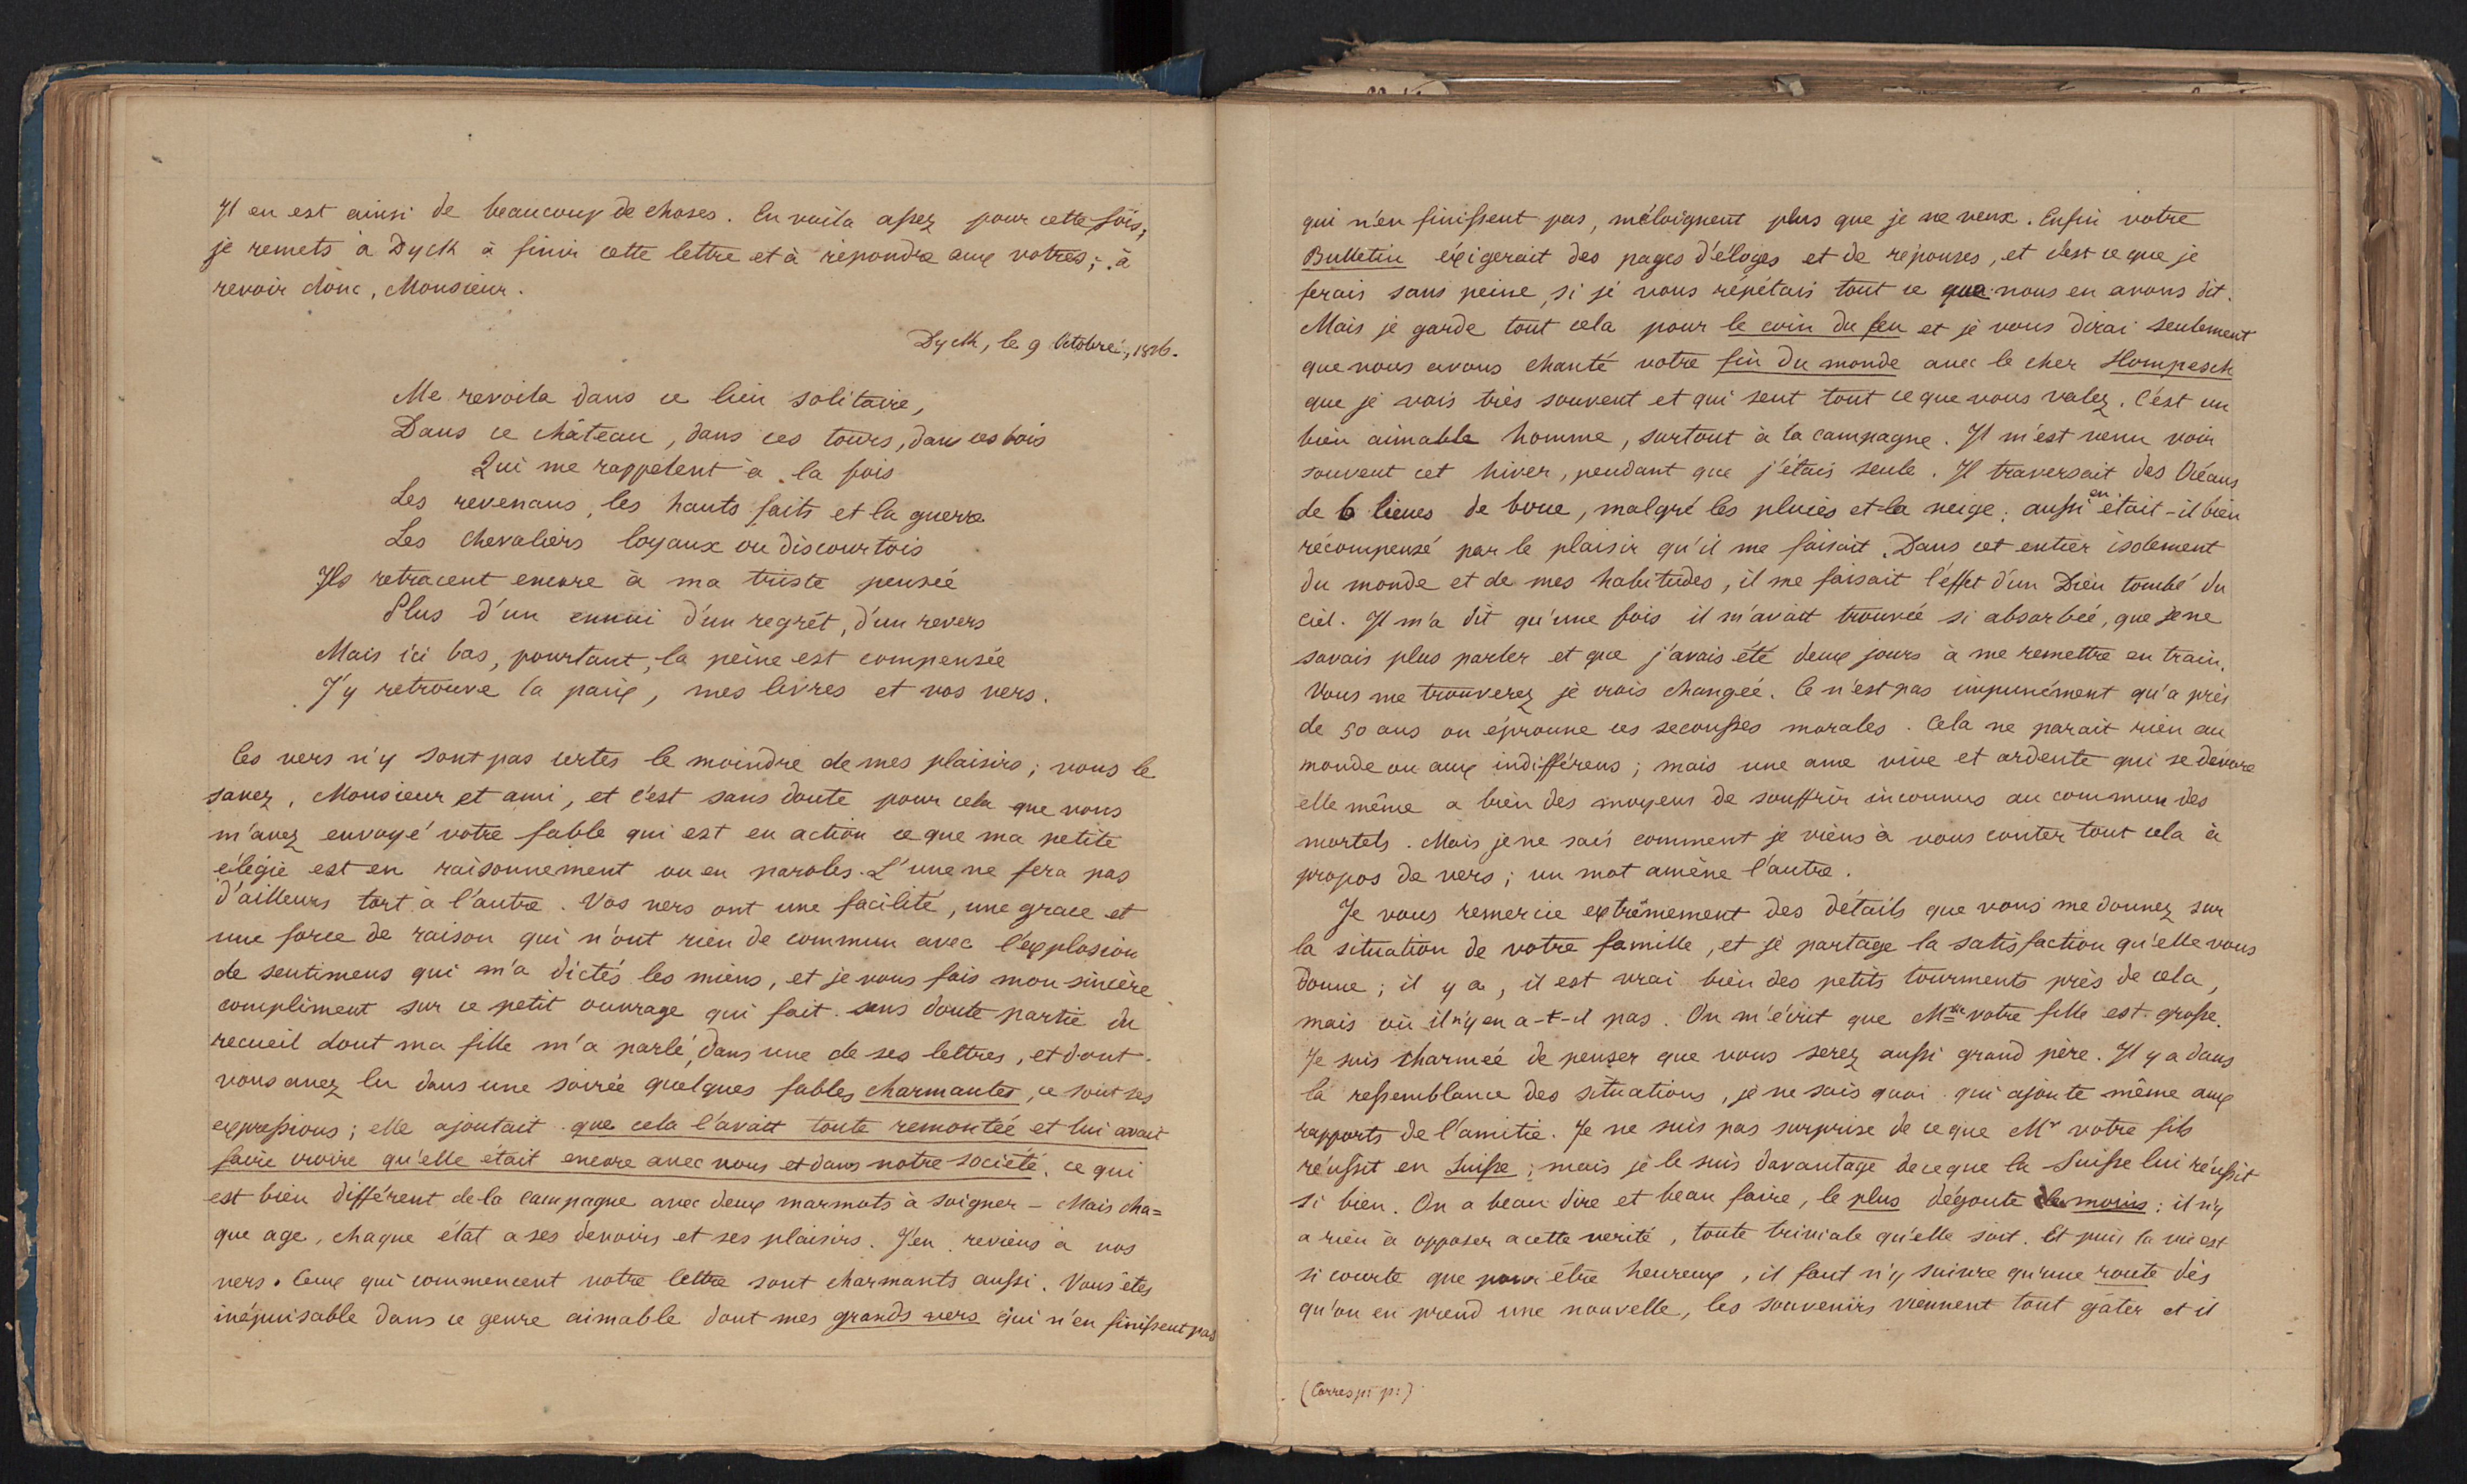 Il en est ainsi de beaucoup de choses. En voila assez pour cette fois,
je remets à Dyck à finir cette lettre et à répondre aux votres; à
revoir donc, Monsieur.
Dyck, le 9 Octobre, 1826.
Me revoila dans ce lieu solitaire,
Dans ce château, dans ces tours, dans ces bois
Qui me rappelent à la fois
Les revenans, les hauts faits et la guerre
Les chevaliers loyaux ou discourtois
Ils retracent encore à ma triste pensée
Plus d'un ennui d'un regrét, d'un revers
Mais ici bas, pourtant, la peine est compensée
J'y retrouve la paix, mes livres et vos vers.
Ces vers n'y sont pas certes le moindre de mes plaisirs; vous le
savez, Monsieur et ami, et c'est sans doute pour cela que vous
m'avez envoyé votre fable qui est en action ce que ma petite
élégie est en raisonnement ou en paroles. L'une ne fera pas
d'ailleurs tort à l'autre. Vos vers ont une facilité, une grace et
une force de raison qui n'ont rien de commun avec l'explosion
de sentimens qui m'a dictés les miens, et je vous fais mon sincère
compliment sur ce petit ouvrage qui fait sans doute partie du
recueil dont ma fille m'a parlé, dans une de ses lettres, et dont
vous avez lu dans une soirée quelques fables charmantes, ce sont ses
expressions; elle ajoutait que cela l'avait toute remontée et lui avait
faire croire qu'elle était encore avec nous et dans notre société, ce qui
est bien différent de la campagne avec deux marmots à soigner – Mais cha=
que age, chaque état a ses devoirs et ses plaisirs. J'en reviens à vos
vers. Ceux qui commencent votre lettre sont charmants aussi. Vous êtes
inépuisable dans ce genre aimable dont mes grands vers qui n'en finissent pas
qui n'en finissent pas, m'éloignent plus que je ne veux. Enfin votre
Bulletin éxigerait des pages d'éloges et de réponses, et c'est ce que je
ferais sans peine, si je vous répétais tout ce que nous en avons dit.
Mais je garde tout cela pour le coin du feu et je vous dirai seulement
que nous avons chanté votre fin du monde avec le cher Hompesch
que je vois très souvent et qui sent tout ce que vous valez. C'est un
bien aimable homme, surtout à la campagne. Il m'est venu voir
souvent cet hiver, pendant que j'étais seule. Il traversait des Océans
de 6 lieues de boue, malgré les pluies et la neige; aussi en était-il bien
récompensé par le plaisir qu'il me faisait. Dans cet entier isolement
du monde et de mes habitudes, il me faisait l'effet d'un Dieu tombé du
ciel. Il m'a dit qu'une fois il m'avait trouvée si absorbée, que je ne
savais plus parler et que j'avais été deux jours à me remettre en train.
Vous me trouverez je crois changée. Ce n'est pas impunément qu'a près
de 50 ans on éprouve ces secousses morales. Cela ne parait rien au
monde ou aux indifférens; mais une ame vive et ardente qui se dévore
elle même a bien des moyens de souffrir inconnus au commun des
mortels. Mais je ne sais comment je viens à vous conter tout cela à
propos de vers; un mot amène l'autre.
Je vous remercie extrêmement des détails que vous me donnez sur
la situation de votre famille, et je partage la satisfaction qu'elle vous
donne; il y a, il est vrai bien des petits tourments près de cela,
mais où il n'y en a-t-il pas. On m'écrit que Mme votre fille est grosse.
Je suis charmée de penser que vous serez aussi grand père. Il y a dans
la ressemblance des situations, je ne sais quoi qui ajoute même aux
rapports de l'amitié. Je ne suis pas surprise de ce que Mr votre fils
réussit en Suisse; mais je le suis davantage de ce que la Suisse lui réussit
si bien. On a beau dire et beau faire, le plus dégoute du moins; il n'y
a rien à opposer a cette verité, toute triviale qu'elle soit. Et puis la vie est
si courte que pour être heureux, il faut n'y suivre qu'une route dès
qu'on en prend une nouvelle, les souvenirs viennent tout gâter et il
(Corresp: p:)